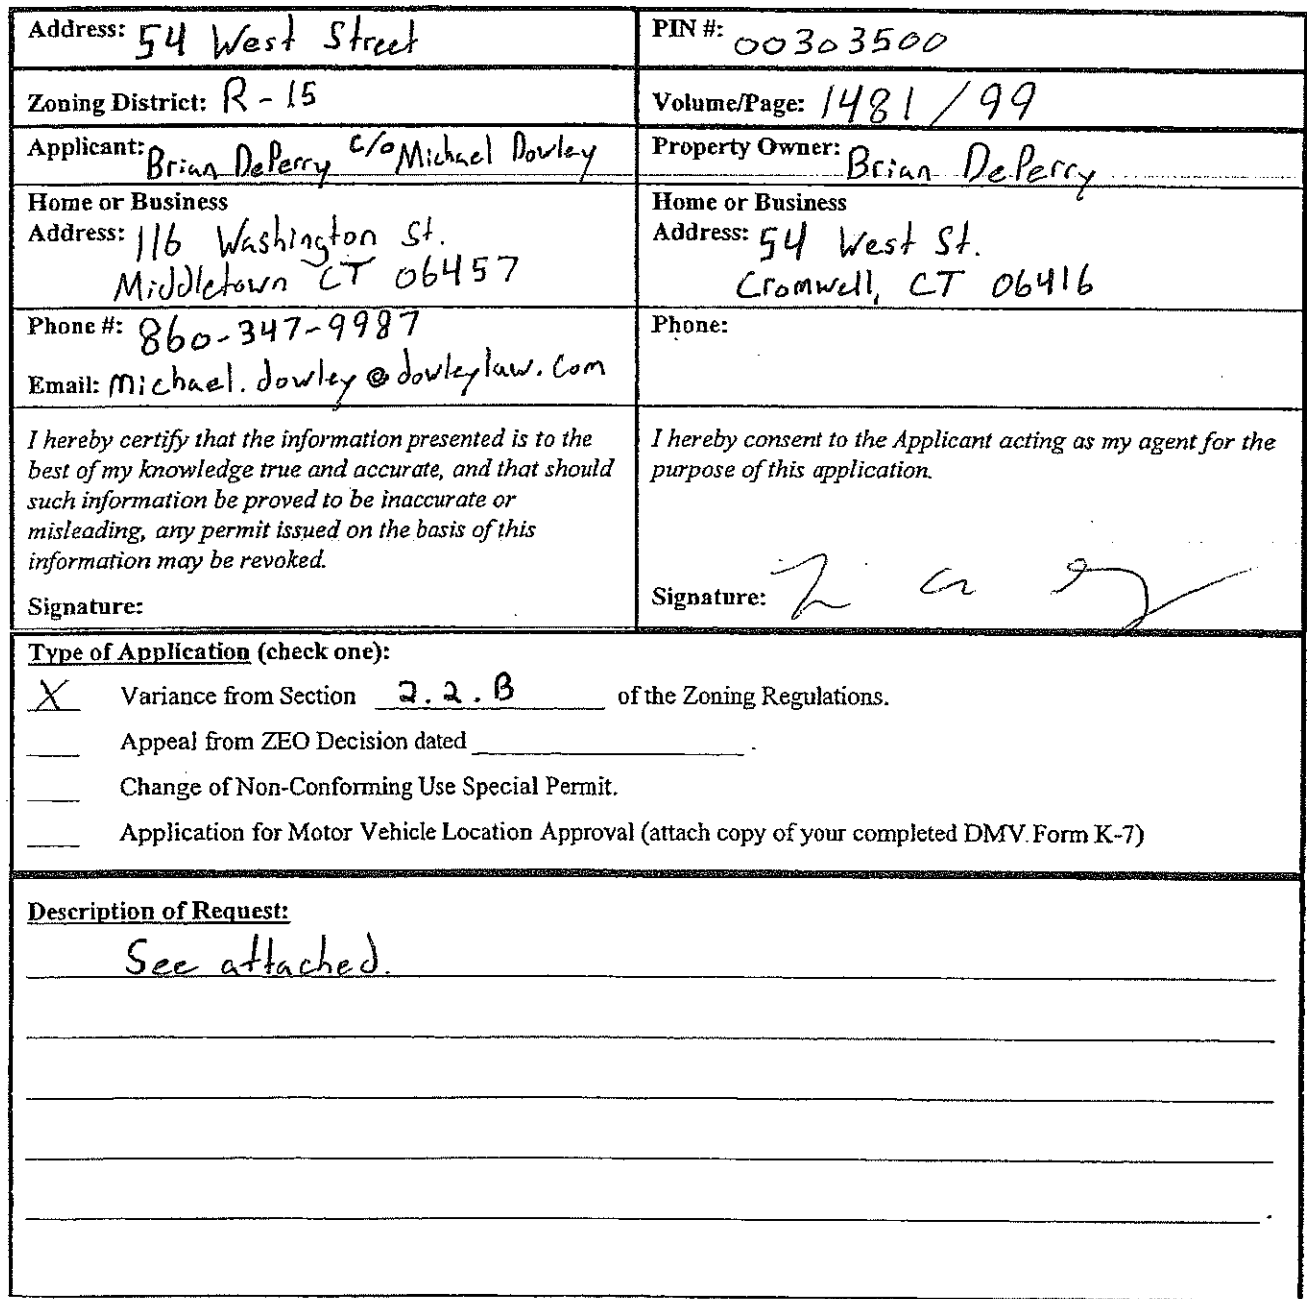 Address: 54 West Street
PIN #: 00303500
Zoning District: R-15
Volume/Page: 1481/99
Applicant: Brian DePerry c/o Michael Dowley
Property Owner: Brian DePerry
Home or Business
Address: 116 Washington St.
Middletown CT 06457
Home or Business
Address: 54 West St.
Cromwell, CT 06416
Phone #: 860-347-9987
Email: michael.dowley@dowleylaw.com
Phone:
I hereby certify that the information presented is to the
best of my knowledge true and accurate, and that should
such information be proved to be inaccurate or
misleading, any permit issued on the basis of this
information may be revoked.
Signature:
I hereby consent to the Applicant acting as my agent for the
purpose of this application.
Signature:
Type of Application (check one):
X Variance from Section 2.2.B of the Zoning Regulations.
Appeal from ZEO Decision dated .
Change of Non-Conforming Use Special Permit.
Application for Motor Vehicle Location Approval (attach copy of your completed DMV Form K-7)
Description of Request:
See attached.